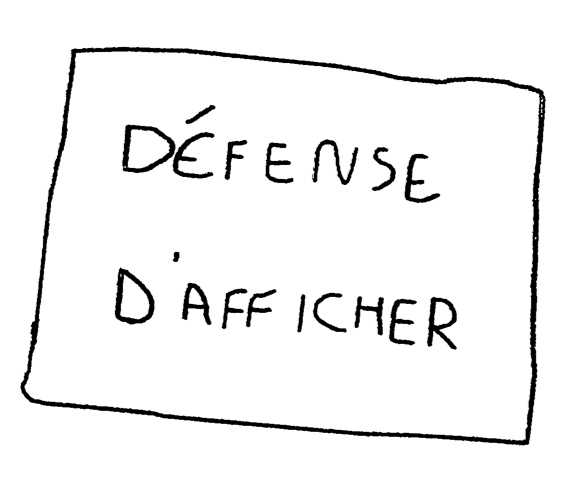 DÉFENSE
D'AFFICHER